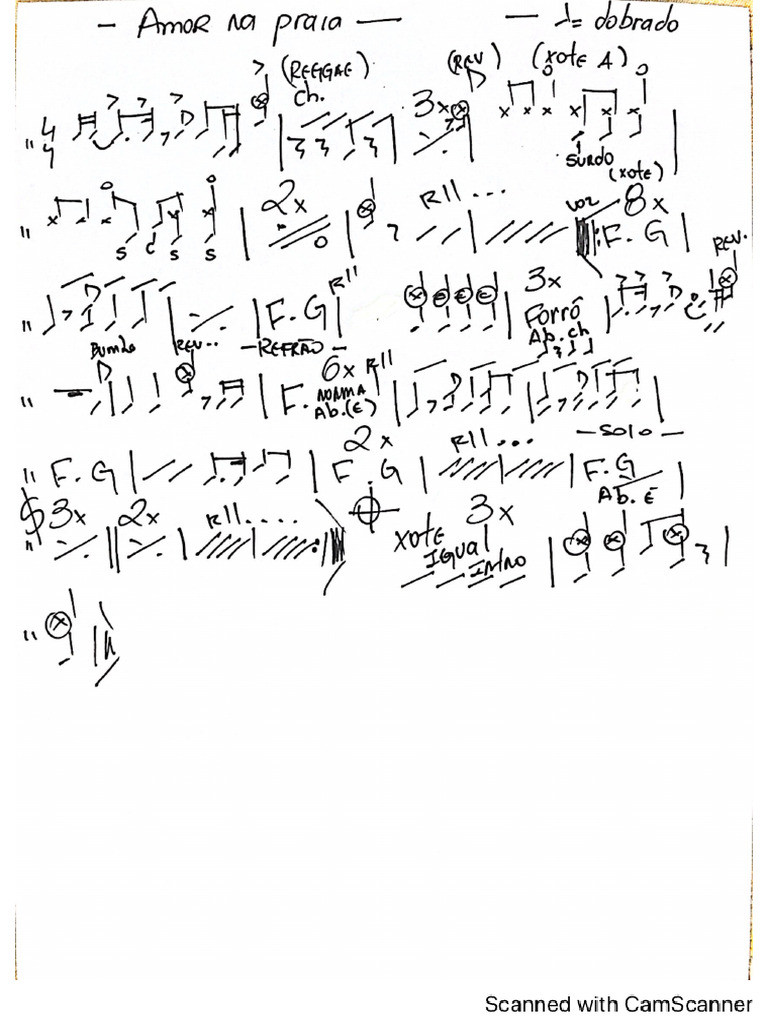 - Amor na praia - - = dobrado
(REGGAE) (REV) (xote A)
> > > > Ch. 3x D
" 4/4 D
SURDO
(xote)
2x R|| ... voz 8x
" S C S S F.G REV.
R|| 3x
" D F.G Forró D
Ab. ch
REV.. - REFRÃO -
D 6x R||
" F. NORMA D D
Ab. (E)
2x R|| ... - SOLO -
" F.G F.G F.G
Ab. E
3x 2x R|| .... 3x
" xote IGUAL INTRO
"
Scanned with CamScanner